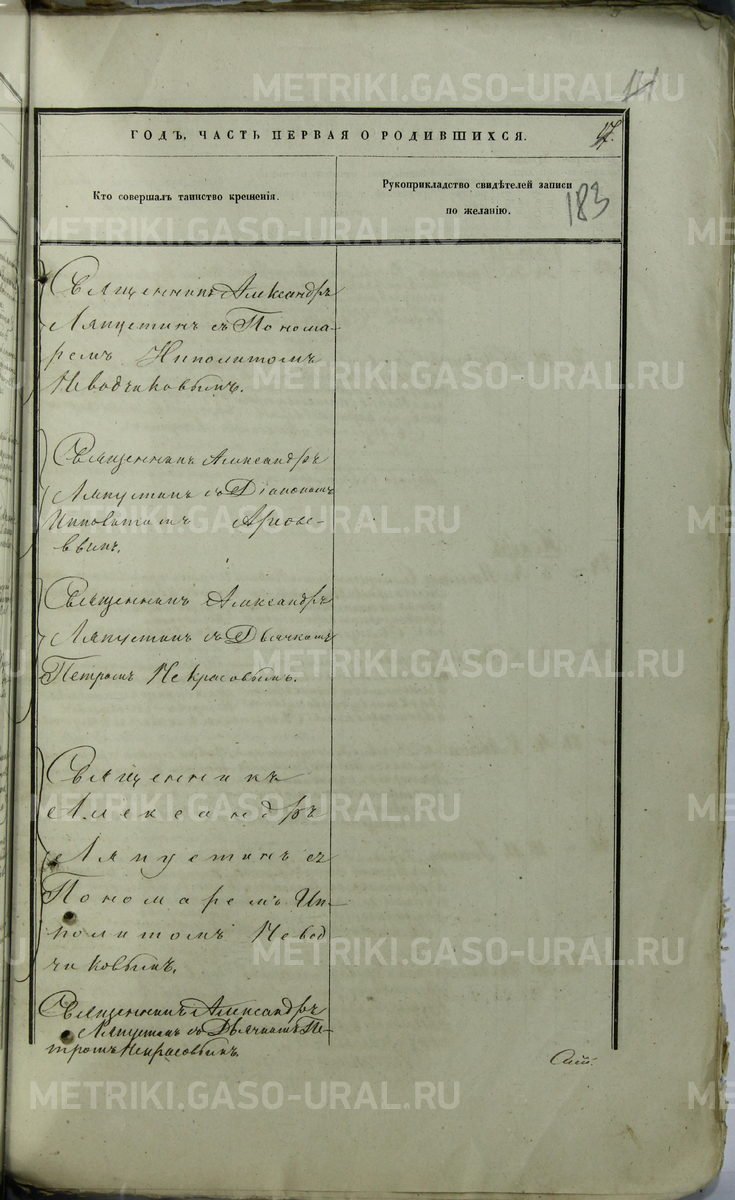 141
ГОДЪ, ЧАСТЬ ПЕРВАЯ О РОДИВШИХСЯ.
17.
Кто совершалъ таинство крещенія.
Рукоприкладство свидѣтелей записи
по желанію.
183
Священникъ Александръ
Ляпустинъ съ Понома-
ремъ Ипполитомъ
Неводчиковымъ.
Священникъ Александръ
Ляпустинъ съ Діакономъ
Священникъ Александръ
Ляпустинъ съ Дьячкомъ
Петромъ Некрасовымъ.
Священникъ
Александръ
Ляпустинъ съ
Пономаремъ Ип-
политомъ Невод
чиковымъ.
Священникъ Александръ
Ляпустинъ съ Дьячкомъ Пе-
тромъ Некрасовымъ.
METRIKI.GASO-URAL.RU